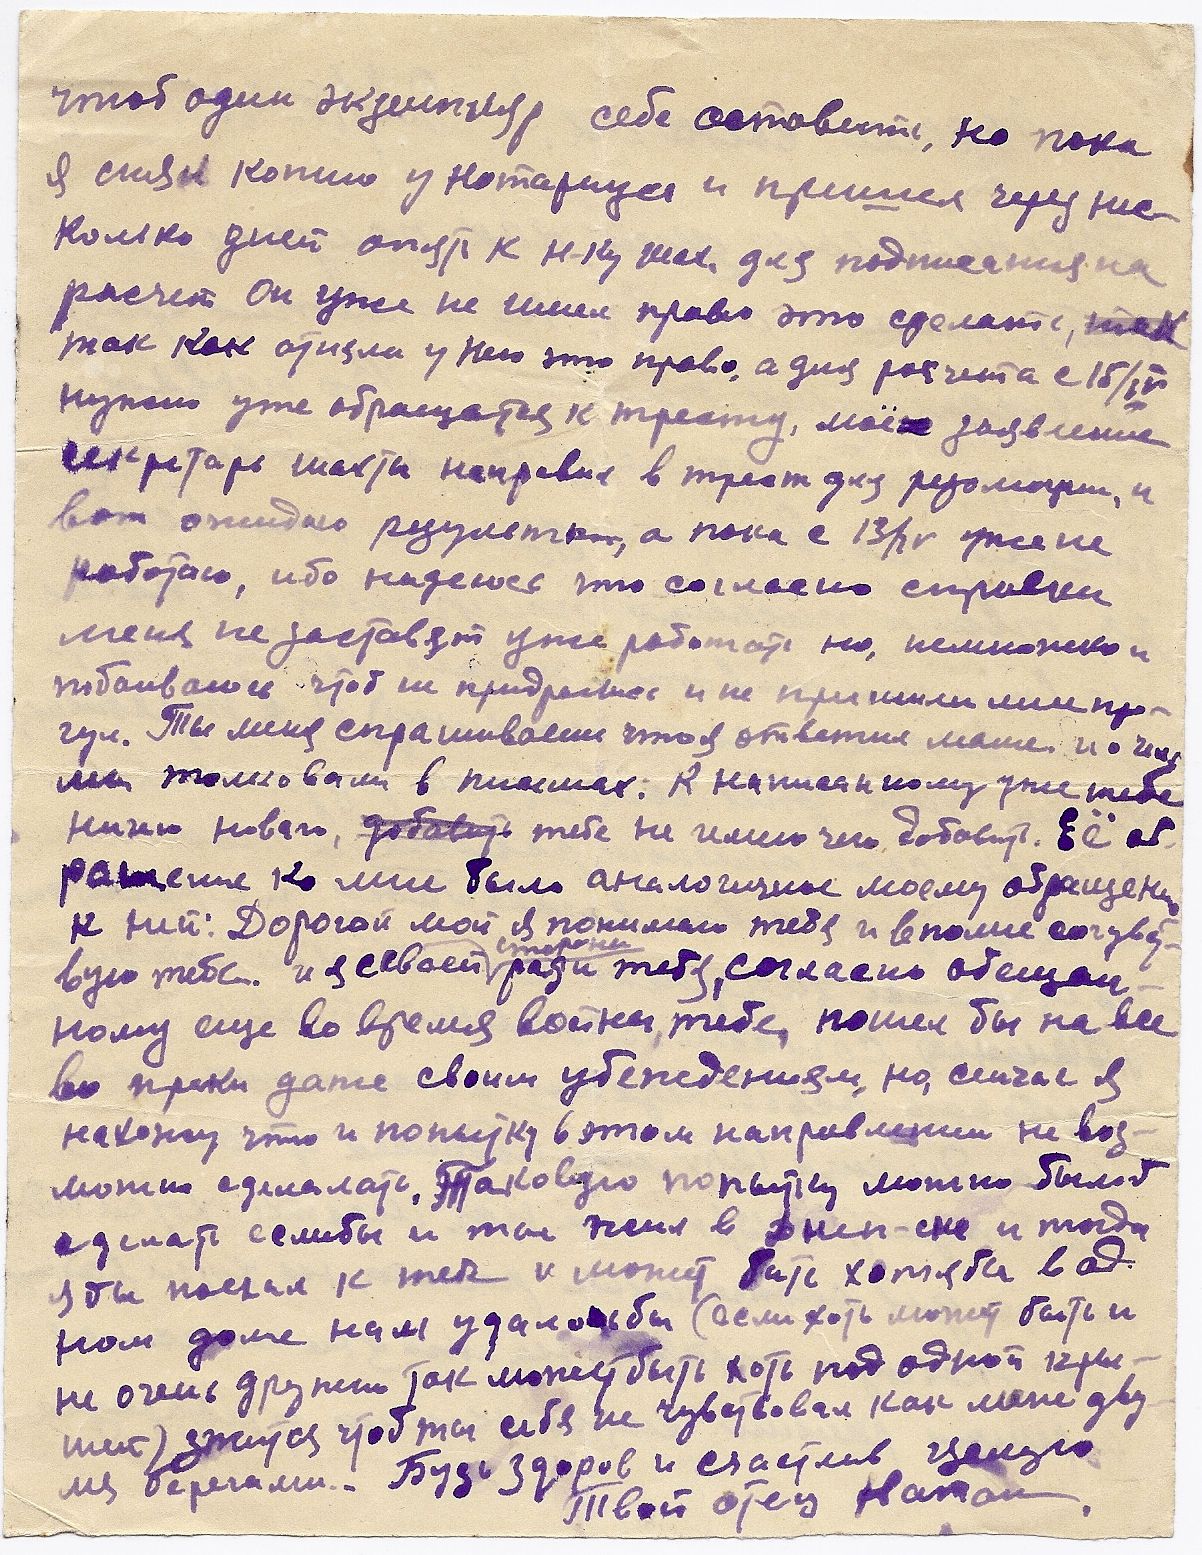 чтоб один экземпляр себе оставить, но пока
я снял копию у нотариуса и пришел через нес-
колько дней опять к н-ку шах. для подписания на
расчет Он уже не имел право это сделать, так
так как отняли у него это право, а для расчета с 15/IV
нужно уже обращатся к тресту, моё заявление
секретарь шахты направил в трест для резолюции, и
вот ожидаю результат, а пока с 13/IV уже не
работаю, ибо надеюсь что согласно справки
меня не заставят уже работать но, немножко и
побаиваюсь чтоб не придрались и не пришили мне про-
гул. Ты меня спрашиваеш что я ответил маме и о чем
мы толковали в письмах: К написанному уже тебе
ничего новаго, добавить тебе не имею чего добавить. Её об-
ращение ко мне было аналогичное моему обращению
к ней: Дорогой мой я понимаю тебя и вполне сочувст-
вую тебе. и я с своей стороны ради тебя, согласно обещан-
ному еще во время войны, тебе, пошел бы на все
во преки даже своим убеждениям, но, сейчас я
нахожу что и попытку в этом направлении не воз-
можно сделалать. Таковую попытку можно былоб
сделать еслибы и ты жил в Днеп-ске и тогда
я бы поехал к тебе и может быть хотябы в од-
ном доме нам удалосьбы (если хоть может быть и
не очень дружно так может быть хоть под одной кры-
шей) ужится чтоб ты себя не чувствовал как меж дву-
мя берегами.. Будь здоров и счастлив целую
Твой отец Натан.